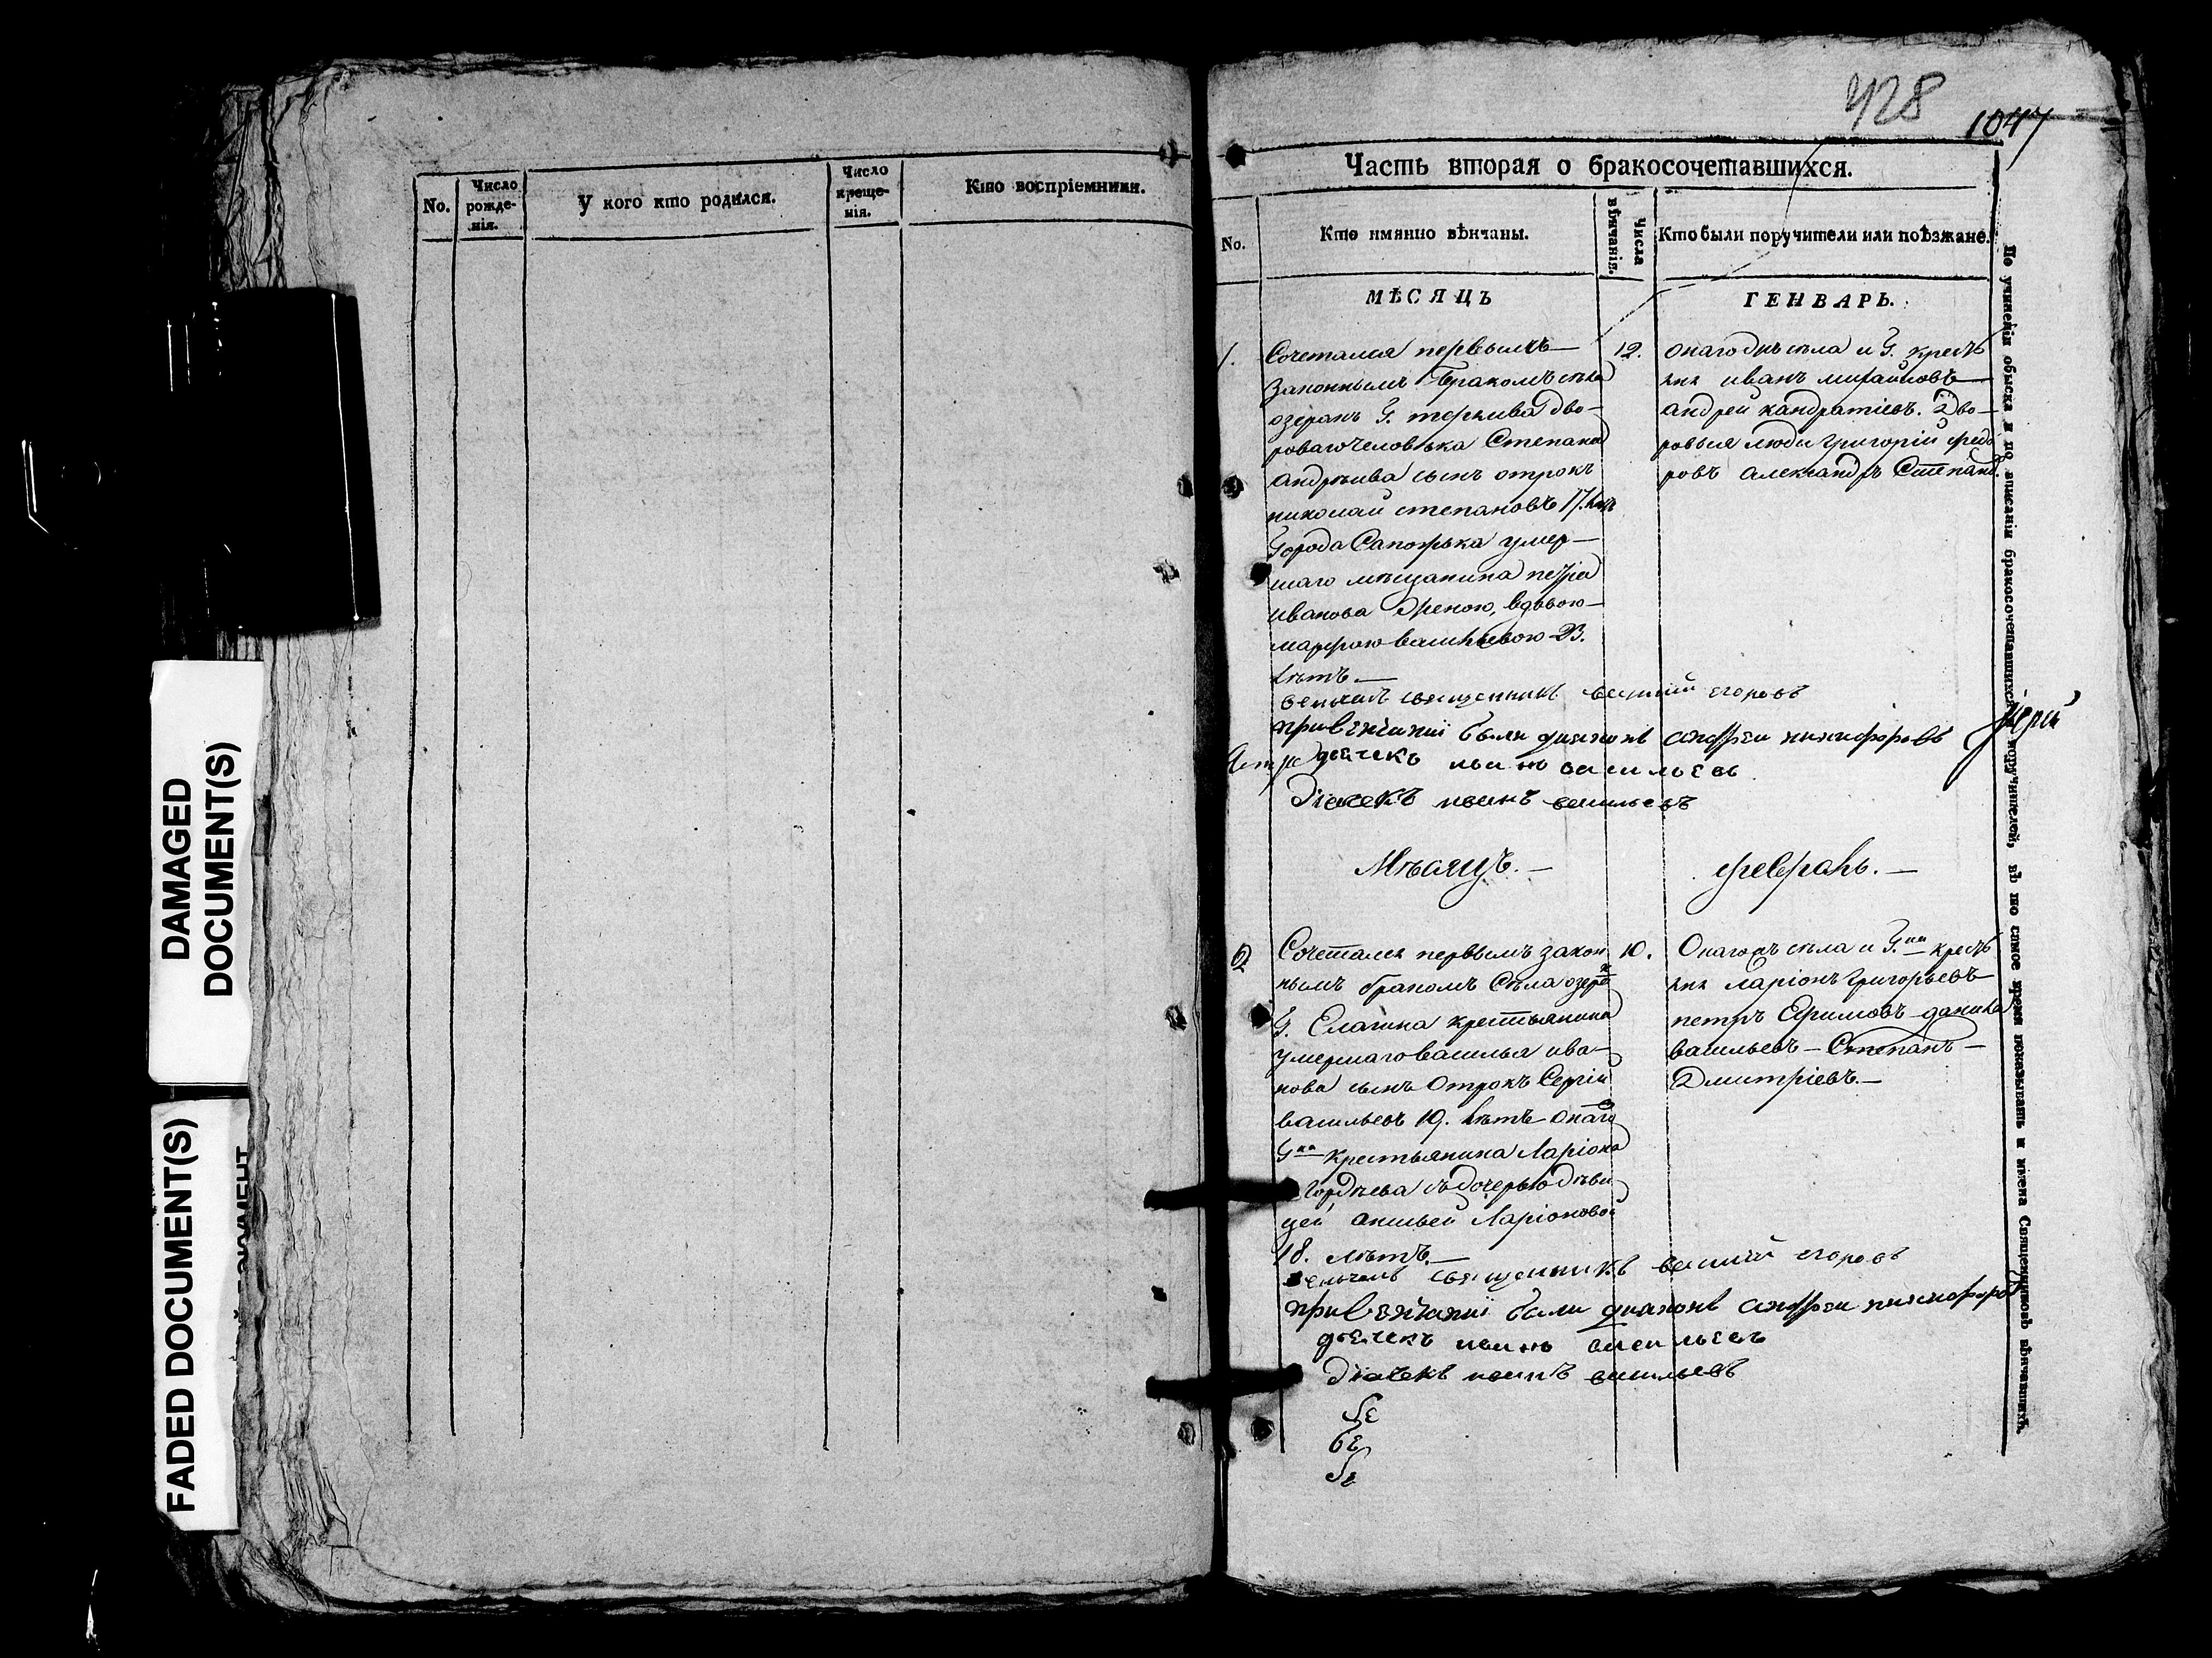 DAMAGED
DOCUMENT(S)
FADED DOCUMENT(S)
No.
Число рожде-нія.
У кого кто родился.
Число креще-нія.
Кто воспріемники.
428
1047
Часть вторая о бракосочетавшихся.
No.
Кто имянно вѣнчаны.
Числа вѣнчанія.
Кто были поручители или поѣзжане.
МѢСЯЦЪ
ГЕНВАРЬ.
1.
Сочетался первымъ
законнымъ бракомъ села
озеракъ Г. дво-
роваго человѣка Степана
андрѣива сынъ отрокъ
николай степановъ 17. лѣтъ
Города Сапожка умер-
шаго мѣщанина петра
иванова женою, вдовою
марфою васильевою 23.
лѣтъ
12.
онагожъ села и Г. крестъ
яня иванъ михайловъ
андрей кандратіевъ. Дво-
ровыя люди григорій федо
ровъ александръ Степано
венчалъ священникъ василій егоровъ
при венчании были диаконъ андреи никифоровъ
дьячекъ иванъ васильевъ
Діячекъ иванъ васильевъ
Мѣсяцъ.
февраль.
2
Сочетался первымъ закон
нымъ бракомъ Села озеракъ
Г. Елагина крестьянина
умершаго василья ива-
нова сынъ Отрокъ Сергій
васильевъ 19. лѣтъ онаго
Гна крестьянина Ларіона
гордѣева съ дочерью дѣви
цей Ларіоновой
18. лѣтъ
10.
Онагожъ села и Г.на крестъ
яня ларіонъ григорьевъ
петръ Ефимовъ данила
васильевъ Степанъ
Дмитріевъ.
венчалъ священникъ василій егоровъ
при венчании были диаконъ андреи никифоровъ
дьячекъ иванъ васильевъ
Діячекъ иванъ васильевъ
По учиненіи обыска и по вписаніи бракосочетавшихся и поручителей, въ то самое время показывать и имена Священниковъ вѣнчавшихъ.
Іерей